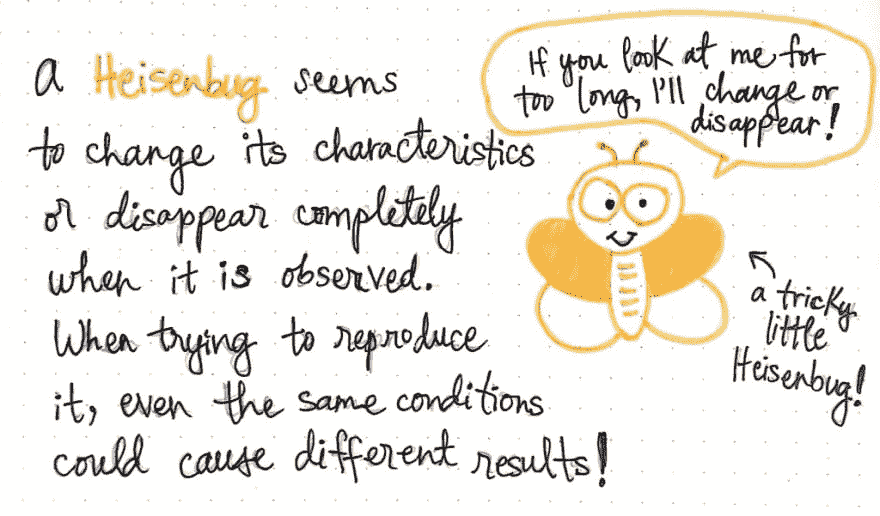 a Heisenbug seems
to change its characteristics
or disappear completely
when it is observed.
When trying to reproduce
it, even the same conditions
could cause different results!
If you look at me for
too long, I'll change or
disappear!
a tricky
little
Heisenbug!